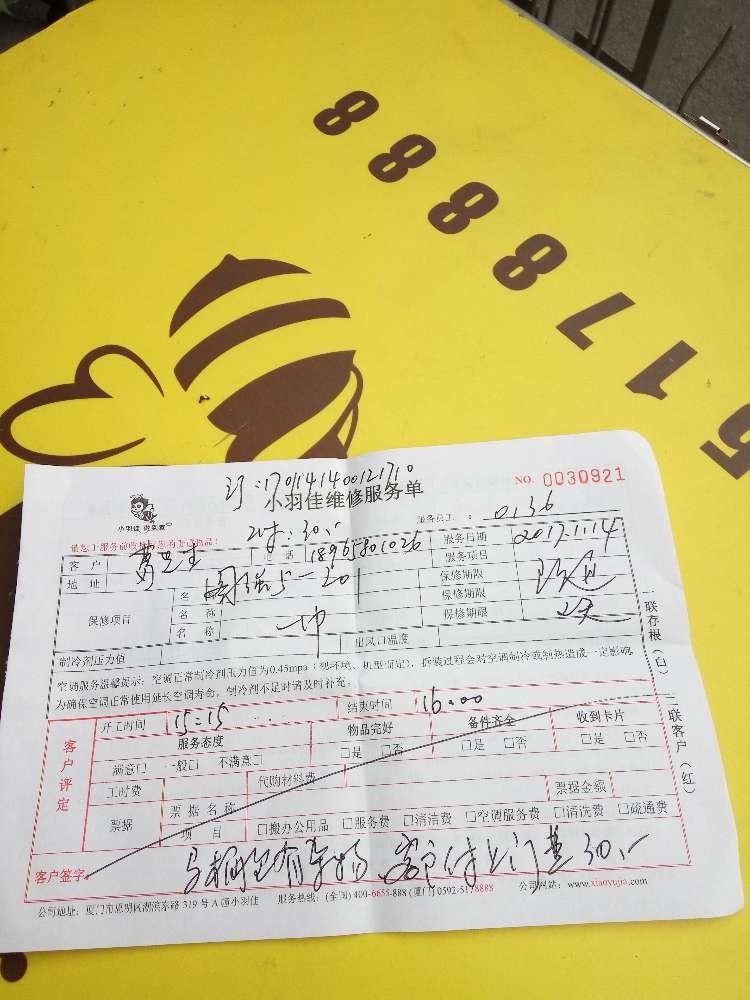 5178888
1701141400121710
NO. 0030921
小羽佳维修服务单
小羽佳
30.
服务员工： 0136
客 户
电 话 18965801026
服务日期 2017.1.14
地 址
服务项目
保修项目
名
名 称
名 称
保修期限
保修期限
保修期限
制冷剂压力值
出风口温度
空调服务温馨提示：空调正常制冷剂压力值为0.45mpa（视环境、机型而定），拆装过程会对空调制冷或制热造成一定影响，
为确保空调正常使用延长空调寿命，制冷剂不足时请及时补充。
一联存根（白）
二联客户（红）
客户评定
开工时间 15:15
结束时间 16:00
服务态度
物品完好
备件齐全
收到卡片
满意□ 一般□ 不满意□
□是 □否
□是 □否
□是 □否
工时费
代购材料费
票据
票 据 名 称
票据金额
项 目
□搬办公用品 □服务费 □清洁费 □空调服务费 □清洗费 □疏通费
客户签字
有杂物 客户付上门费30.
公司地址：厦门市思明区湖滨东路 319 号 A 幢小羽佳 服务热线：(全国) 400-6655-888 (厦门) 0592-5178888 公司网站：www.xiaoyujia.com